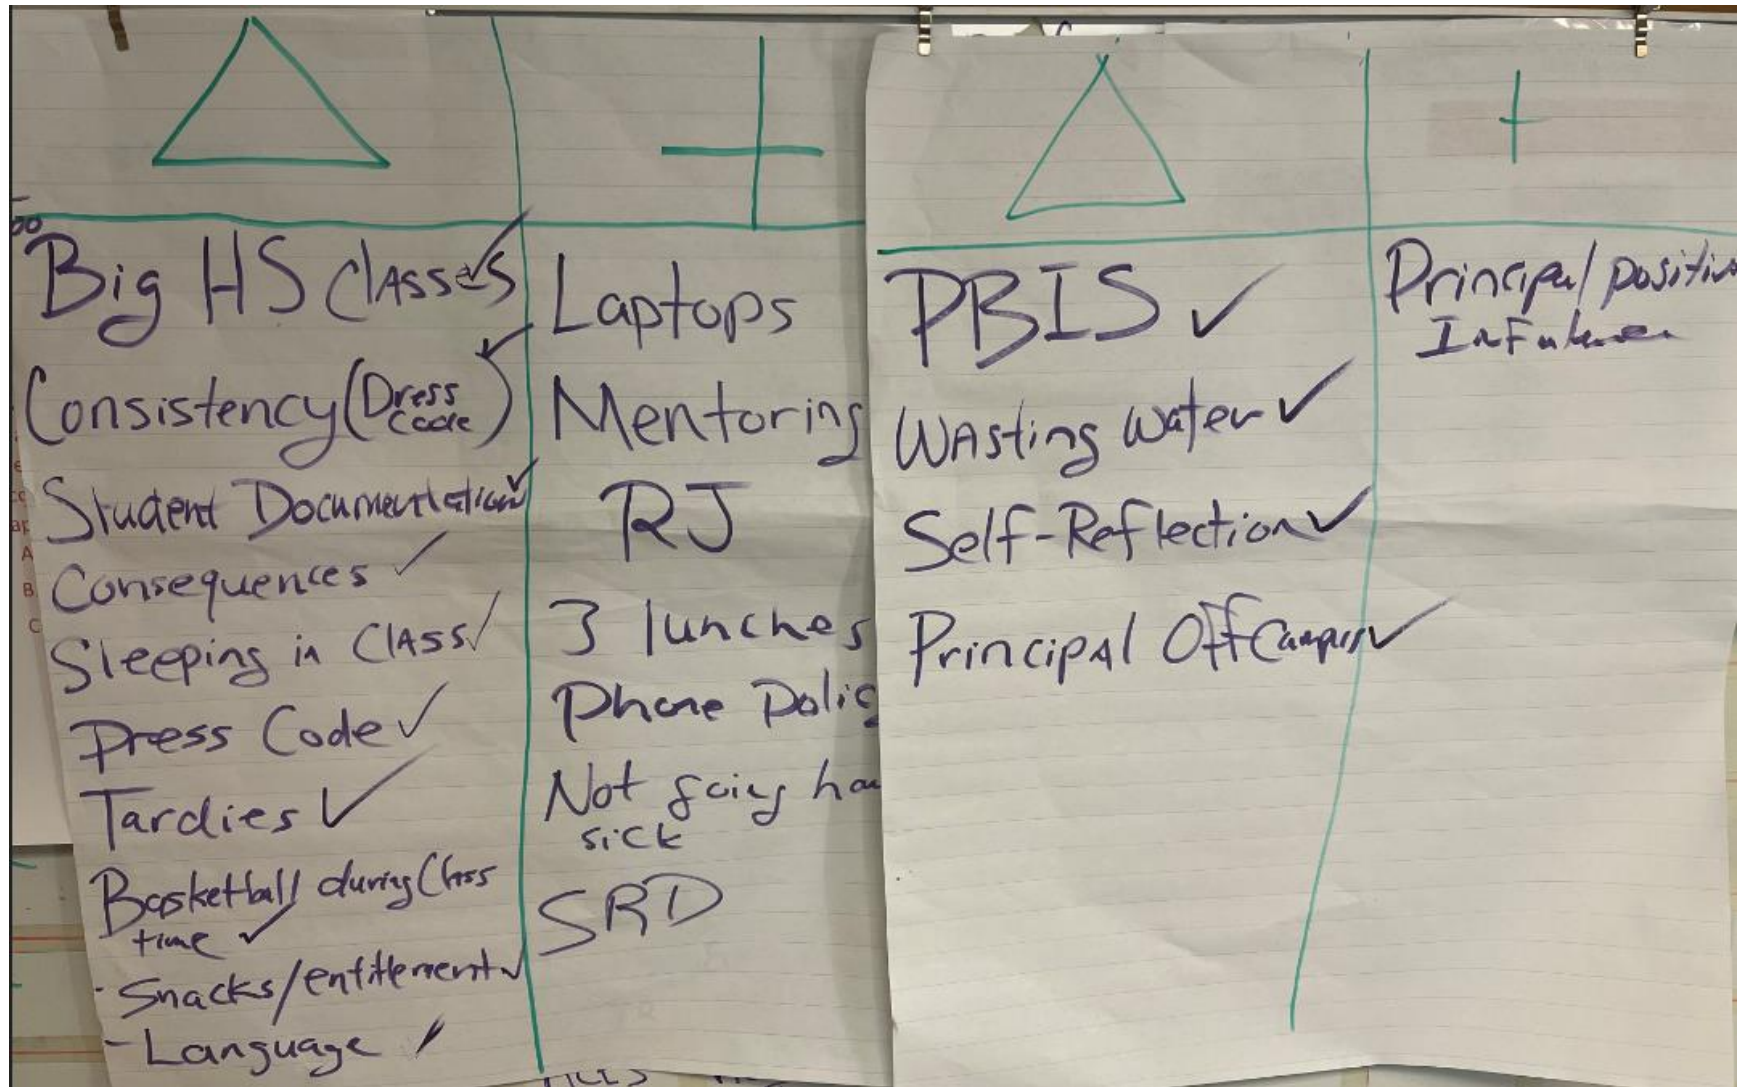 Big HS Classes
Consistency (Dress
Code)
Student Documentation
Consequences
Sleeping in Class
Dress Code
Tardies
Basketball during Class
time
- Snacks/entitlement
- Language
Laptops
Mentoring
RJ
3 lunches
Phone Polic
Not going
sick
SRD
PBIS
Wasting Water
Self-Reflection
Principal Off Campus
Principal positiv